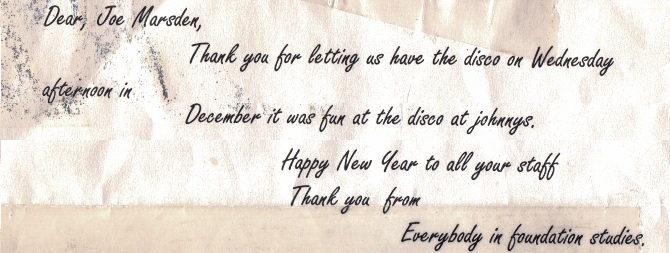 Dear, Joe Marsden,
Thank you for letting us have the disco on Wednesday
afternoon in
December it was fun at the disco at johnnys.
Happy New Year to all your staff
Thank you from
Everybody in foundation studies.